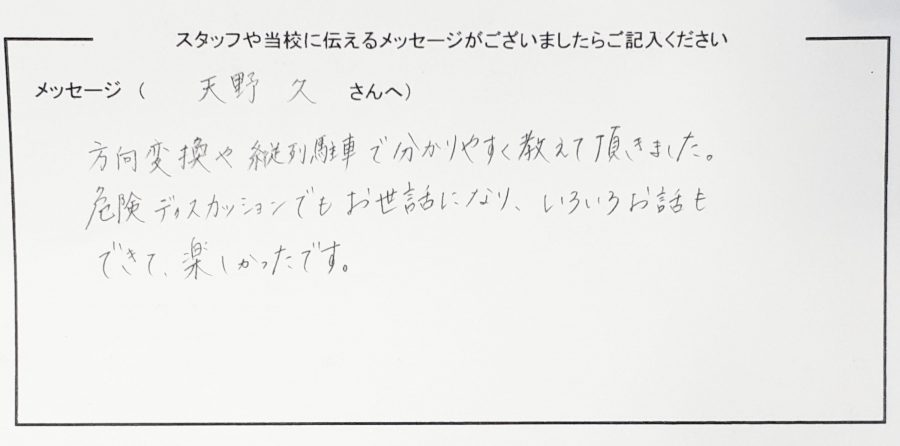 スタッフや当校に伝えるメッセージがございましたらご記入ください
メッセージ ( 天野 久 さんへ)
方向変換や縦列駐車で分かりやすく教えて頂きました。
危険ディスカッションでもお世話になり、いろいろお話も
できて、楽しかったです。